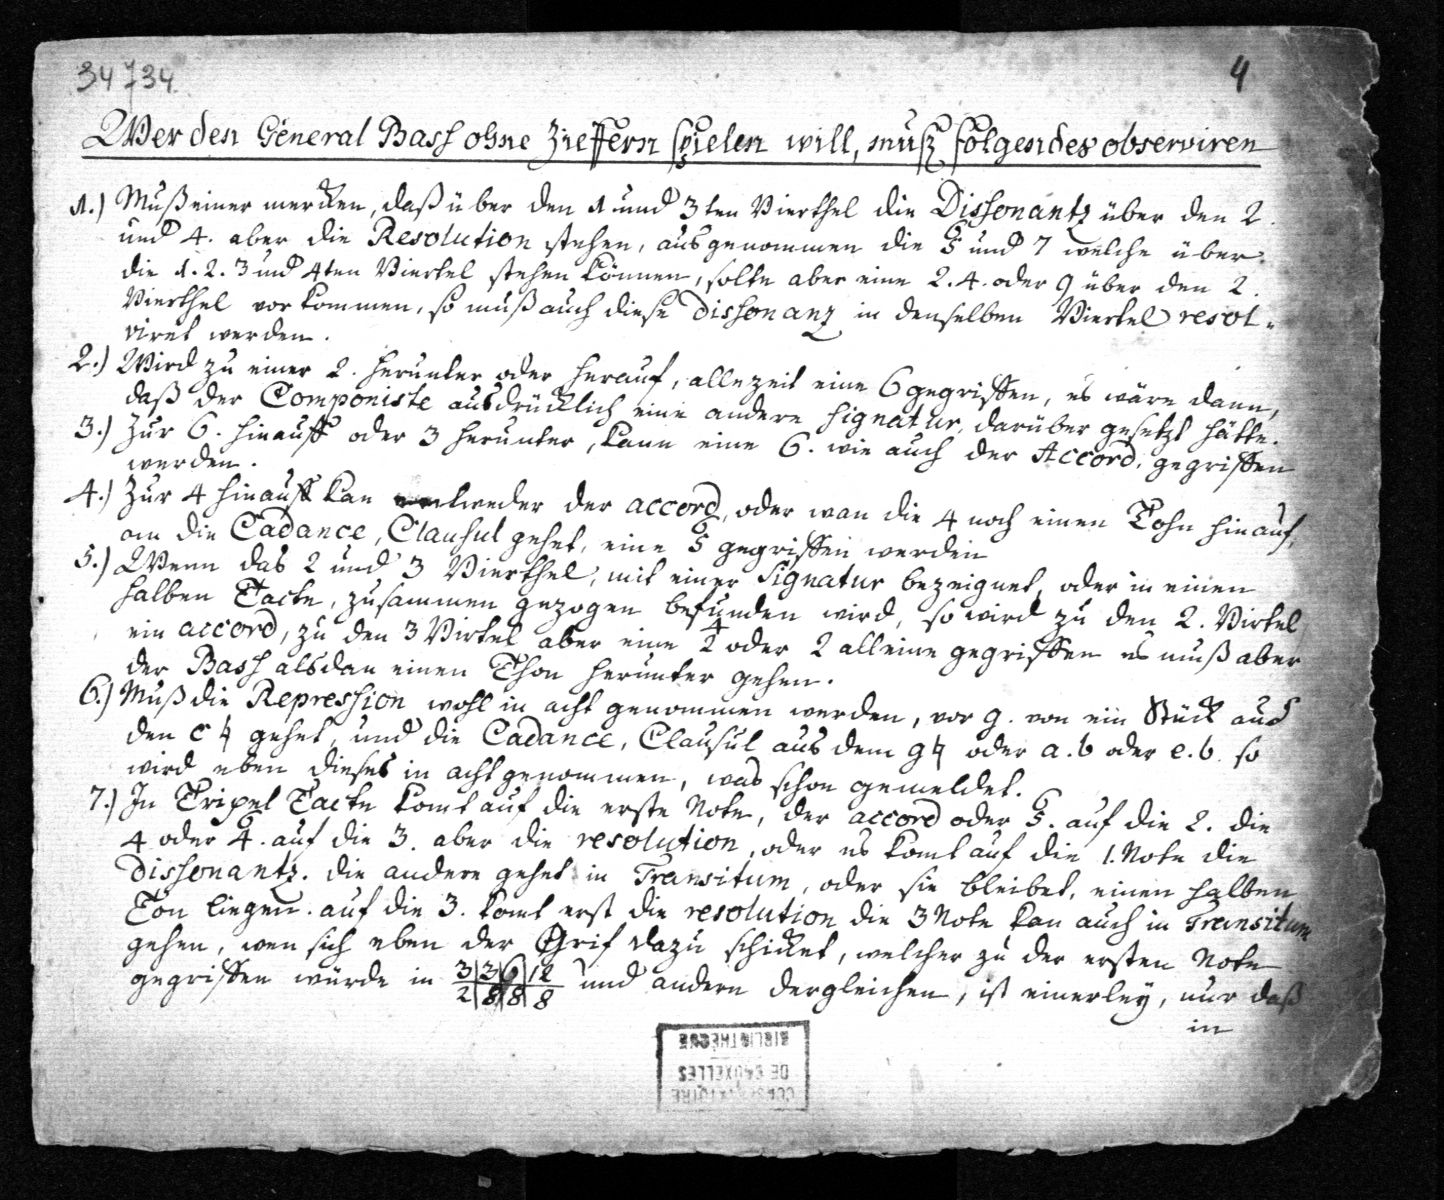 34734
4
Wer den General Bass ohne Zieffern spielen will, muß folgendes observiren
1.) Muß einer mercken, daß über den 1 und 3ten Vierthel die Dissonantz über den 2.
und 4. aber die Resolution stehen, ausgenommen die 6/5 und 7 welche über
die 1. 2. 3 und 4ten Viertel stehen können, solte aber eine 2. 4. oder 9 über den 2.
Vierthel vorkommen, so muß auch diese Dissonanz in denselben Viertel resol-
viret werden.
2.) Wird zu einer 2. herunter oder herauf, allezeit eine 6 gegriffen, es wäre dann,
daß der Componiste ausdrücklich eine andere Signatur, darüber gesetzt hätte.
3.) Zur 6. hinauff oder 3 herunter, kann eine 6. wie auch der Accord, gegriffen
werden.
4.) Zur 4 hinauff kan entweder der accord, oder wan die 4 noch einen Tohn hinauf,
an die Cadance, Clausul gehet, eine 6/5 gegriffen werden
5.) Wenn das 2 und 3 Vierthel, mit einer Signatur bezeignet, oder in einen
halben Tacte, zusammen gezogen befunden wird, so wird zu den 2. Virtel
ein accord, zu den 3 Virtel aber eine 4/2 oder 2 alleine gegriffen es muß aber
der Bass alsdan einen Thon herunter gehen.
6.) Muß die Repression wohl in acht genommen werden, vor g. von ein Stück aus
den c ♮ gehet, und die Cadance, Clausul aus dem g ♮ oder a. b oder e. b. so
wird eben dieses in acht genommen, was schon gemeldet.
7.) In Tripel Tacte komt auf die erste Note, der accord oder 6/5. auf die 2. die
4 oder 6/4. auf die 3. aber die resolution, oder es komt auf die 1. Note die
Dissonantz. die andere gehet in Transitum, oder sie bleibet, einen halben
Ton liegen. auf die 3. komt erst die resolution die 3 Note kan auch in Transitum
gehen, wen sich eben der Grif dazu schicket, welcher zu der ersten Note
gegriffen würde in 3/2 3/8 6/8 12/8 und andern dergleichen, ist einerley, nur daß
in
CONSERVATOIRE
DE BRUXELLES
BIBLIOTHÈQUE